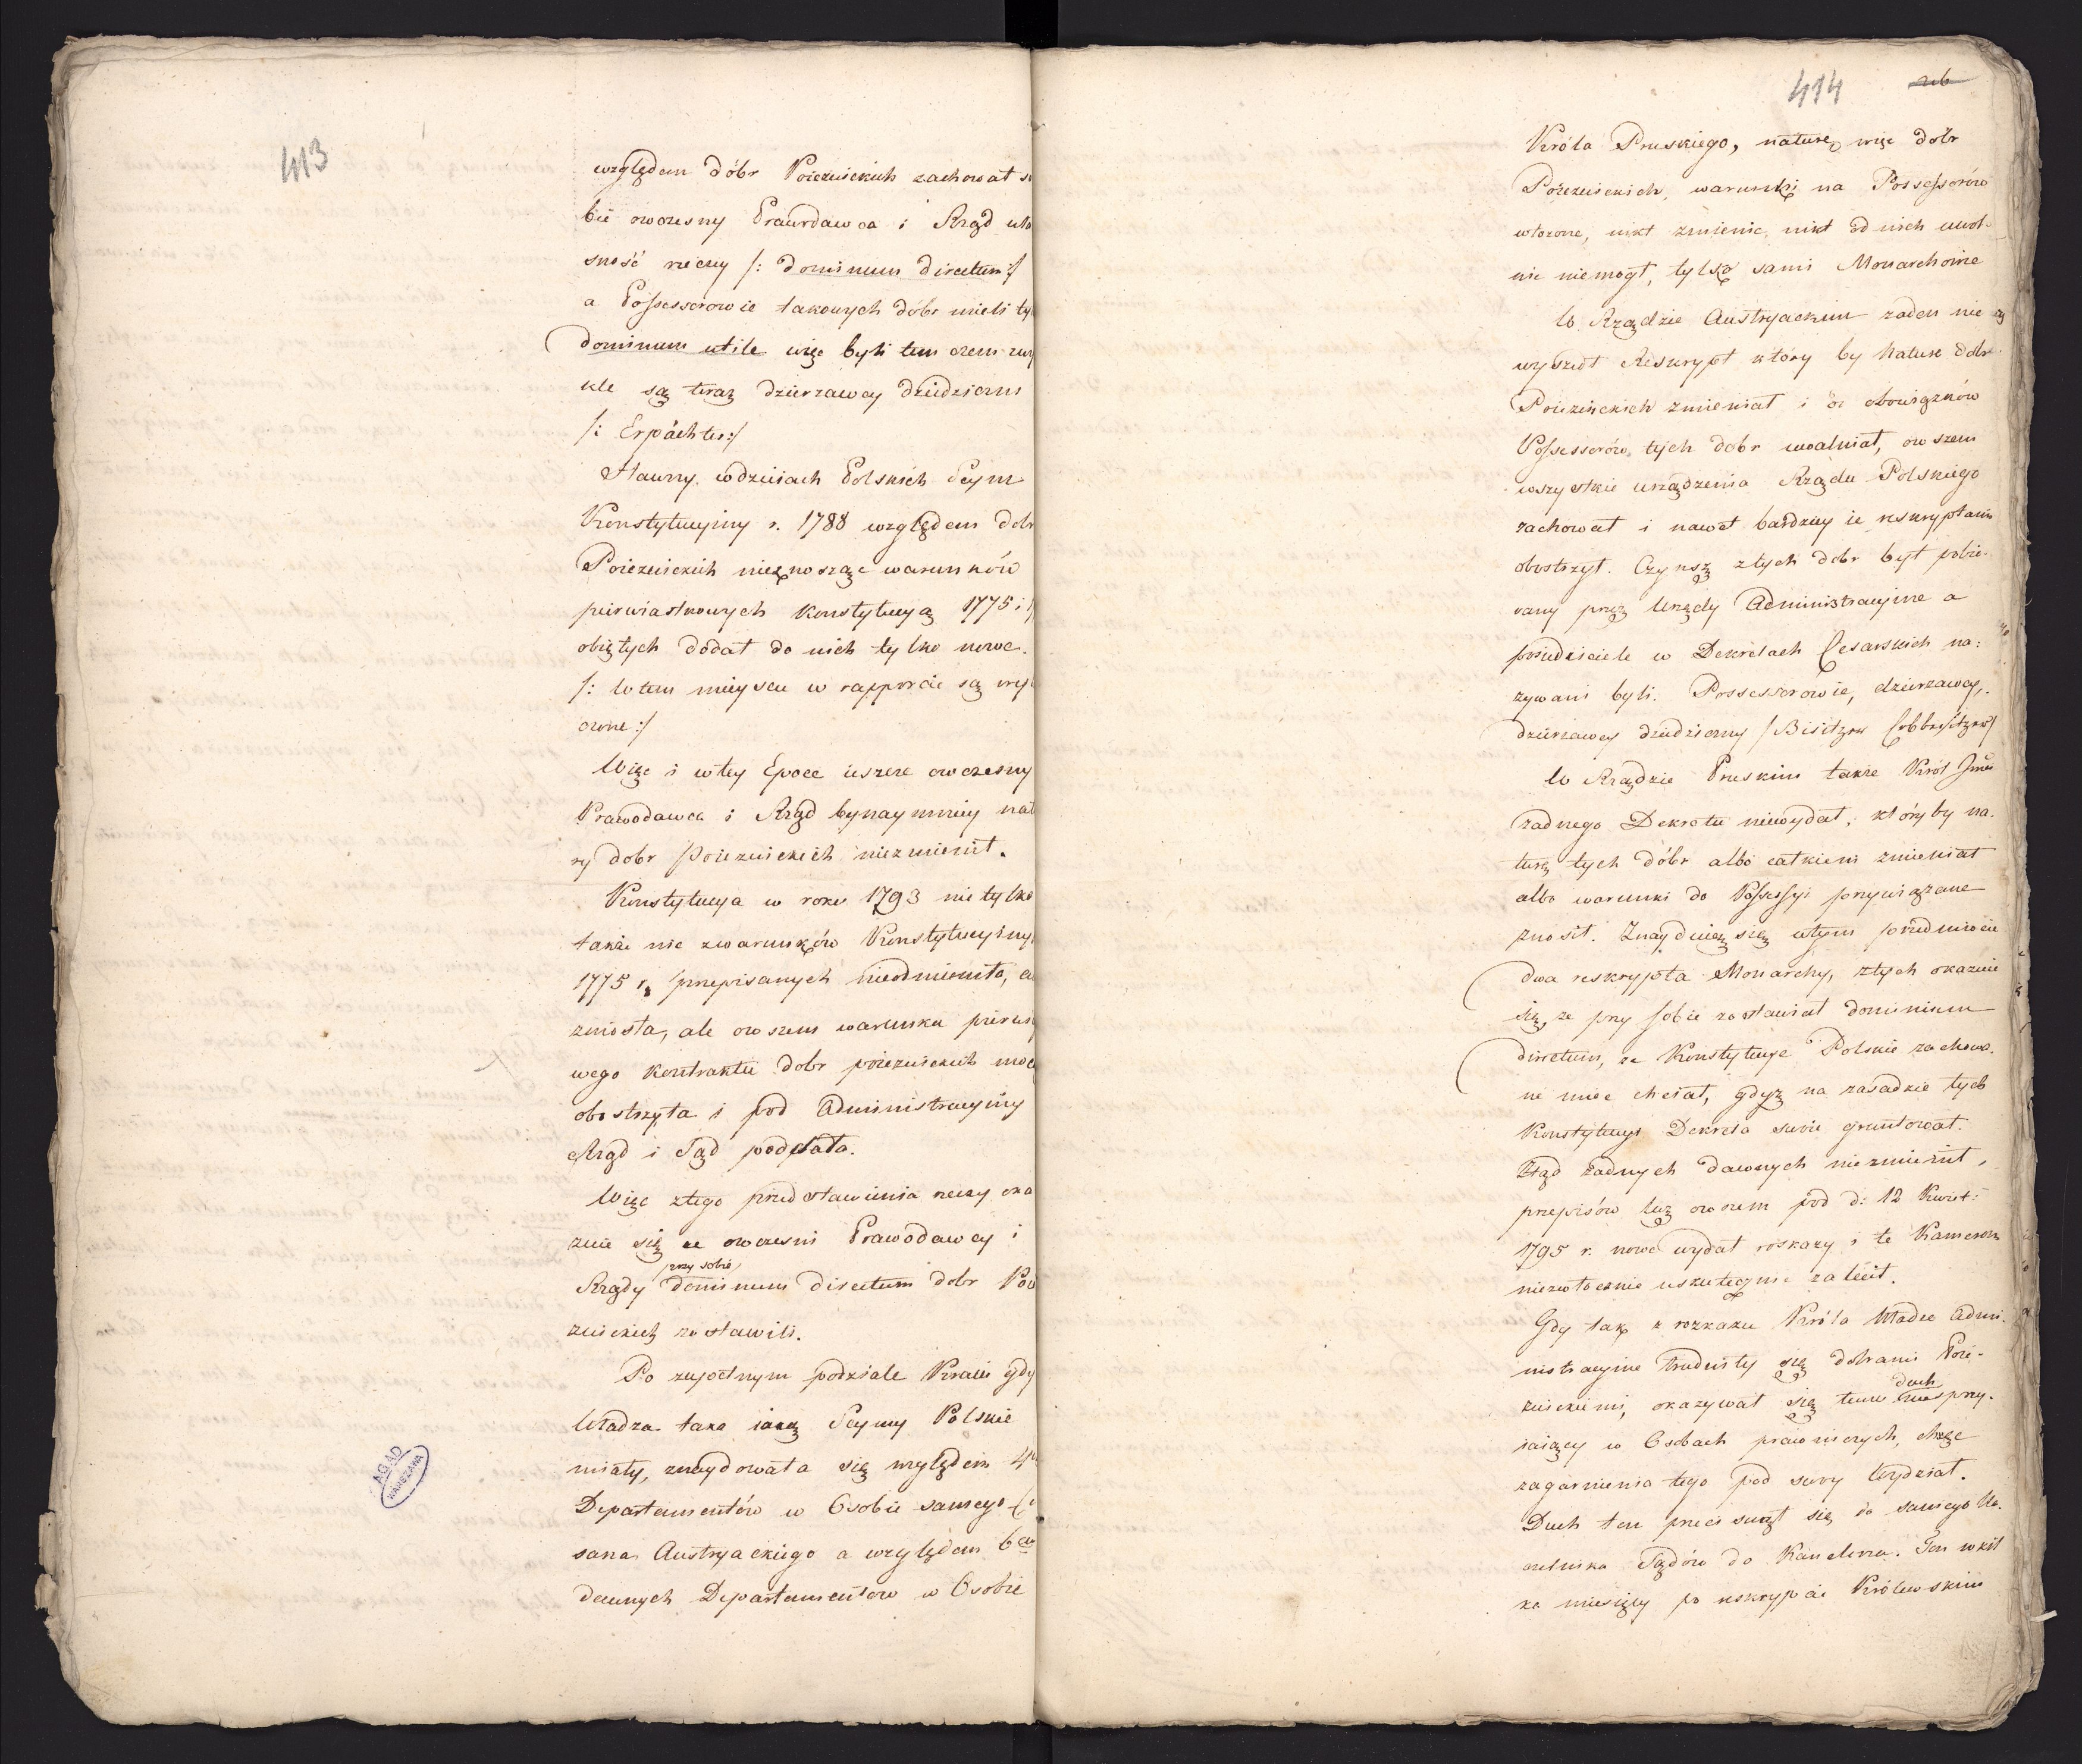 413
względem dóbr Poiezuickich zachował s
bie owczesny Prawodawca i Rząd wła
sność rzeczy /: dominum directum :/
a Possessorowie takowych dóbr mieli ty
dominum utile więc byli tem czem zwy
kle są teraz dzierzawcy dziedziczni
/: Erpächter :/
Sławny w dzieiach Polskich Seym
Konstytucyiny r. 1788 względem dobr
Poiezuickich nieznosząc warunków
pierwiastkowych Konstytucyą 1775 i
obiętych dodał do nich tylko nowe.
/: w tem mieyscu w rapporcie są wy
czone :/
Więc i w tey Epoce ieszcze owczesny
Prawodawca i Rząd bynaymniey natu
ry dobr poiezuickich niezmienił.
Konstytucya w roku 1793 nie tylko
także nic z warunków Konstytucyiny
1775 r. przepisanych nieodmieniła, a
zniosła, ale owszem warunku pierwo
wego kontraktu dobr poiezuickich moc
obostrzyła i pod Administracyiny
Rząd i Sąd poddała.
Więc z tego przedstawienia rzeczy oka
zuie się że owczesni Prawodawcy i
przy sobie
Rządy dominum directum dobr Poie
zuickich zostawili.
Po zupełnym podziale Kraiu gdy
Władza taka iaką Seymy Polskie
miały, znaydowała się względem 4
Departamentów w Osobie samego C
sarza Austryackiego a względem 6
dawnych Departamentow w Osobie
AGAD
WARSZAWA
414
Króla Pruskiego, naturę więc dobr
Poiezuickich, warunki na Possessorów
włożone, nikt zmienić, nikt od nich uwol-
nić niemogł, tylko sami Monarchowie
W Rządzie Austryackim żaden nie
wyszedł Reskrypt który by nature dobr
Poiezuickich zmieniał i od obowiązków
Possessorów tych dobr uwalniał, owszem
wszystkie urządzenia Rządu Polskiego
zachował i nawet bardziey ie reskryptami
obostrzył. Czynsz z tych dobr był pobie-
rany przez Urzędy Administracyine a
posiedziciele w Dekretach Cesarskich na:
zywani byli. Possessorowie, dzierzawcy,
dzierzawcy dziedziczny /Besitzer
W Rządzie Pruskim także Król Jmć
żadnego Dekretu niewydał, któryby na.
turę tych dóbr albo całkiem zmieniał
albo warunki do Possessyi przywiązane
znosił. Znayduią się w tym przedmiocie
dwa reskrypta Monarchy, z tych okazuie
się, ze przy sobie zostawiał dominium
directum, ze Konstytucye Polskie zachowa.
ne mieć chciał, gdyż na zasadzie tych
Konstytucyi Dekreta swoie gruntował.
Rząd żadnych dawnych niezmienił,
przepisów lecz owszem pod d: 12 Kwiet:
1795 r. nowe wydał roskazy i te Kamerom
niezwłocznie uskutecznić zalecił.
Gdy tak z rozkazu Króla Władze Admi.
nistracyine trudniły się dobrami Poie-
duch
zuickiemi, okazywał się temu przy.
iaiący w Osobach prawniczych, chęć
zagarnienia tego pod swoy Wydział.
Duch ten przecisnął się do samego Na.
czelnika Sądów do Kanclerza. Ten w kil
ka miesięcy po reskrypcie Królewskim